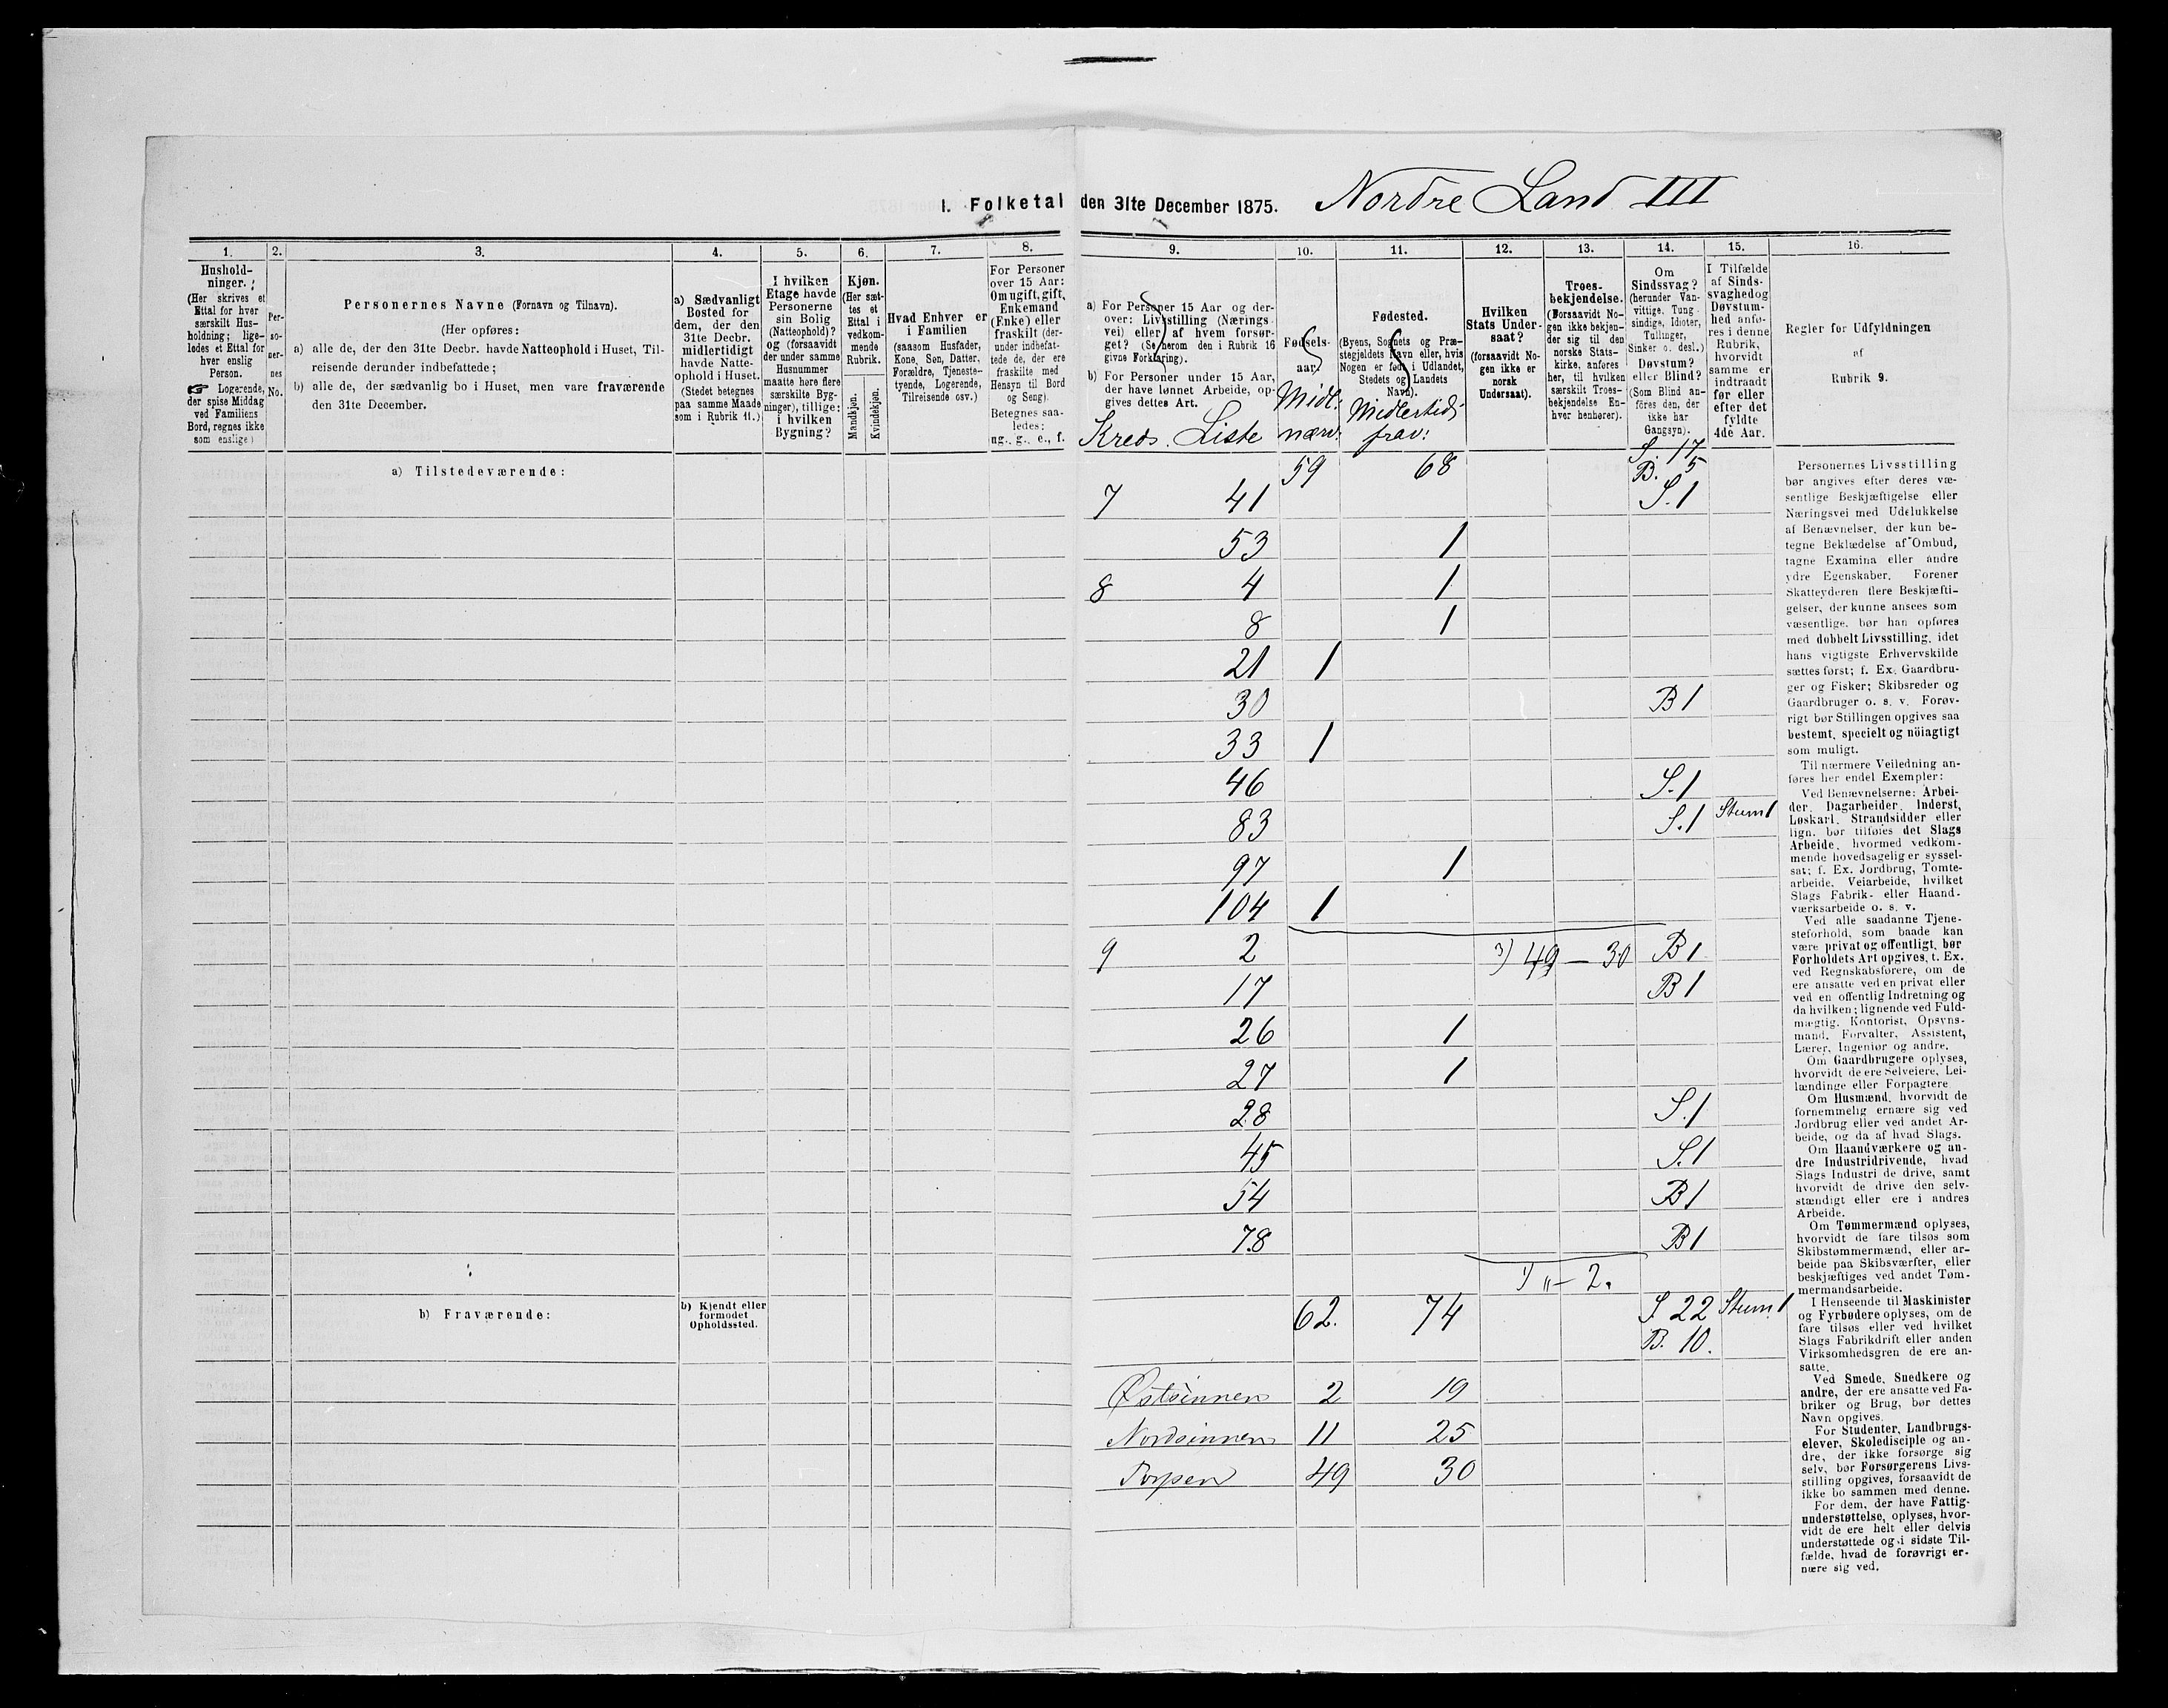 I. Folketal den 31te December 1875. Nordre Land III
1. 2. 3. 4. 5. 6. 7. 8. 9. 10. 11. 12. 13. 14. 15. 16.
Hushold-
ninger.
(Her skrives et
Ettal for hver
særskilt Hus-
holdning; lige-
ledes et Ettal for
hver enslig
Person.
☞ Logerende,
der spise Middag
ved Familiens
Bord, regnes ikke
som enslige)
Per-
so-
ner-
nes
No.
Personernes Navne (Fornavn og Tilnavn).
(Her opføres:
a) alle de, der den 31te Decbr. havde Natteophold i Huset, Til-
reisende derunder indbefattede;
b) alle de, der sædvanlig bo i Huset, men vare fraværende
den 31te December.
a) Sædvanligt
Bosted for
dem, der den
31te Decbr.
midlertidigt
havde Natte-
ophold i Huset.
(Stedet betegnes
paa samme Maade
som i Rubrik 11.)
I hvilken
Etage havde
Personerne
sin Bolig
(Natteophold)?
og (forsaavidt
der under samme
Husnummer
maatte høre flere
særskilte Byg-
ninger), tillige:
i hvilken
Bygning?
Kjøn.
(Her sæt-
tes et
Ettal i
vedkom-
mende
Rubrik.
Mandkjøn.
Kvindekjøn.
Hvad Enhver er
i Familien
(saasom Husfader,
Kone, Søn, Datter,
Forældre, Tjeneste-
tyende, Logerende,
Tilreisende osv.)
For Personer
over 15 Aar:
Om ugift, gift,
Enkemand
(Enke) eller
fraskilt (der-
under indbefat-
tede de, der ere
fraskilte med
Hensyn til Bord
og Seng).
Betegnes saa-
ledes:
ug., g., e., f.
a) For Personer 15 Aar og der-
over: Livsstilling (Nærings-
vei) eller af hvem forsør-
get? (Se herom den i Rubrik 16
givne Forklaring).
b) For Personer under 15 Aar,
der have lønnet Arbeide, op-
gives dettes Art.
Kreds. Liste
Fødsels-
aar.
Midl.
nærv:
Fødested.
(Byens, Sognets og Præ-
stegjeldets Navn eller, hvis
Nogen er født i Udlandet,
Stedets og Landets
Navn).
Midlertid:
frav:
Hvilken
Stats Under-
saat?
(forsaavidt No-
gen ikke er
norsk
Undersaat).
Troes-
bekjendelse.
(Forsaavidt No-
gen ikke bekjen-
der sig til den
norske Stats-
kirke, anføres
her, til hvilken
særskilt Troes-
bekjendelse En-
hver henhører).
Om
Sindssvag?
(herunder Van-
vittige, Tung-
sindige, Idioter,
Tullinger,
Sinker o. desl.)
Døvstum?
eller Blind?
(Som Blind an-
føres den, der
ikke har
Gangsyn).
I Tilfælde
af Sinds-
svaghed og
Døvstum-
hed anfø-
res i denne
Rubrik,
hvorvidt
samme er
indtraadt
før eller
efter det
fyldte
4de Aar.
Regler for Udfyldningen
af
Rubrik 9.
a) Tilstedeværende:
59 68 S. 17
B. 5
7 41 S. 1
53 1
8 4 1
8 1
21 1
30 B 1
33 1
46 S. 1
83 S. 1 Stum 1
97 1
104 1
9 2 3) 49 — 30 B 1
17 B 1
26 1
27 1
28 S. 1
45 S. 1
54 B 1
78 B 1
1) „ — 2.
b) Fraværende:
b) Kjendt eller
formodet
Opholdssted.
62. 74 S 22 Stum 1
B. 10.
Østsinnen 2 19
Nordsinnen 11 25
Torpen 49 30
Personernes Livsstilling
bør angives efter deres væ-
sentlige Beskjæftigelse eller
Næringsvei med Udelukkelse
af Benævnelser, der kun be-
tegne Beklædelse af Ombud,
tagne Examina eller andre
ydre Egenskaber. Forener
Skatteyderen flere Beskjæfti-
gelser, der kunne ansees som
væsentlige, bør han opføres
med dobbelt Livsstilling, idet
hans vigtigste Erhvervskilde
sættes først; f. Ex. Gaardbru-
ger og Fisker; Skibsreder og
Gaardbruger o. s. v. Forøv-
rigt bør Stillingen opgives saa
bestemt, specielt og nöiagtigt
som muligt.
Til nærmere Veiledning an-
føres her endel Exempler:
Ved Benævnelserne: Arbei-
der, Dagarbeider, Inderst,
Løskarl, Strandsidder eller
lign. bør tilføies det Slags
Arbeide, hvormed vedkom-
mende hovedsagelig er syssel-
sat; f. Ex. Jordbrug, Tomte-
arbeide, Veiarbeide, hvilket
Slags Fabrik- eller Haand-
værksarbeide o. s. v.
Ved alle saadanne Tjene-
steforhold, som baade kan
være privat og offentligt, bør
Forholdets Art opgives, t. Ex.
ved Regnskabsførere, om de
ere ansatte ved en privat eller
ved en offentlig Indretning og
da hvilken; lignende ved Fuld-
mægtig, Kontorist, Opsyns-
mand, Forvalter, Assistent,
Lærer, Ingeniør og andre.
Om Gaardbrugere oplyses,
hvorvidt de ere Selveiere, Lei-
lændinge eller Forpagtere
Om Husmænd, hvorvidt de
fornemmelig ernære sig ved
Jordbrug eller ved andet Ar-
beide, og da af hvad Slags.
Om Haandværkere og an-
dre Industridrivende, hvad
Slags Industri de drive, samt
hvorvidt de drive den selv-
stændigt eller ere i andres
Arbeide.
Om Tømmermænd oplyses,
hvorvidt de fare tilsøs som
Skibstømmermænd, eller ar-
beide paa Skibsværfter, eller
beskjæftiges ved andet Tøm-
mermandsarbeide.
I Henseende til Maskinister
og Fyrbødere oplyses, om de
fare tilsøs eller ved hvilket
Slags Fabrikdrift eller anden
Virksomhedsgren de ere an-
satte.
Ved Smede, Snedkere og
andre, der ere ansatte ved Fa-
briker og Brug, bør dettes
Navn opgives.
For Studenter, Landbrugs-
elever, Skoledisciple og an-
dre, der ikke forsørge sig
selv, bør Forsørgerens Livs-
stilling opgives, forsaavidt de
ikke bo sammen med denne.
For dem, der have Fattig-
understøttelse, oplyses, hvor-
vidt de ere helt eller delvis
understøttede og i sidste Til-
fælde, hvad de forøvrigt er-
nære sig ved.